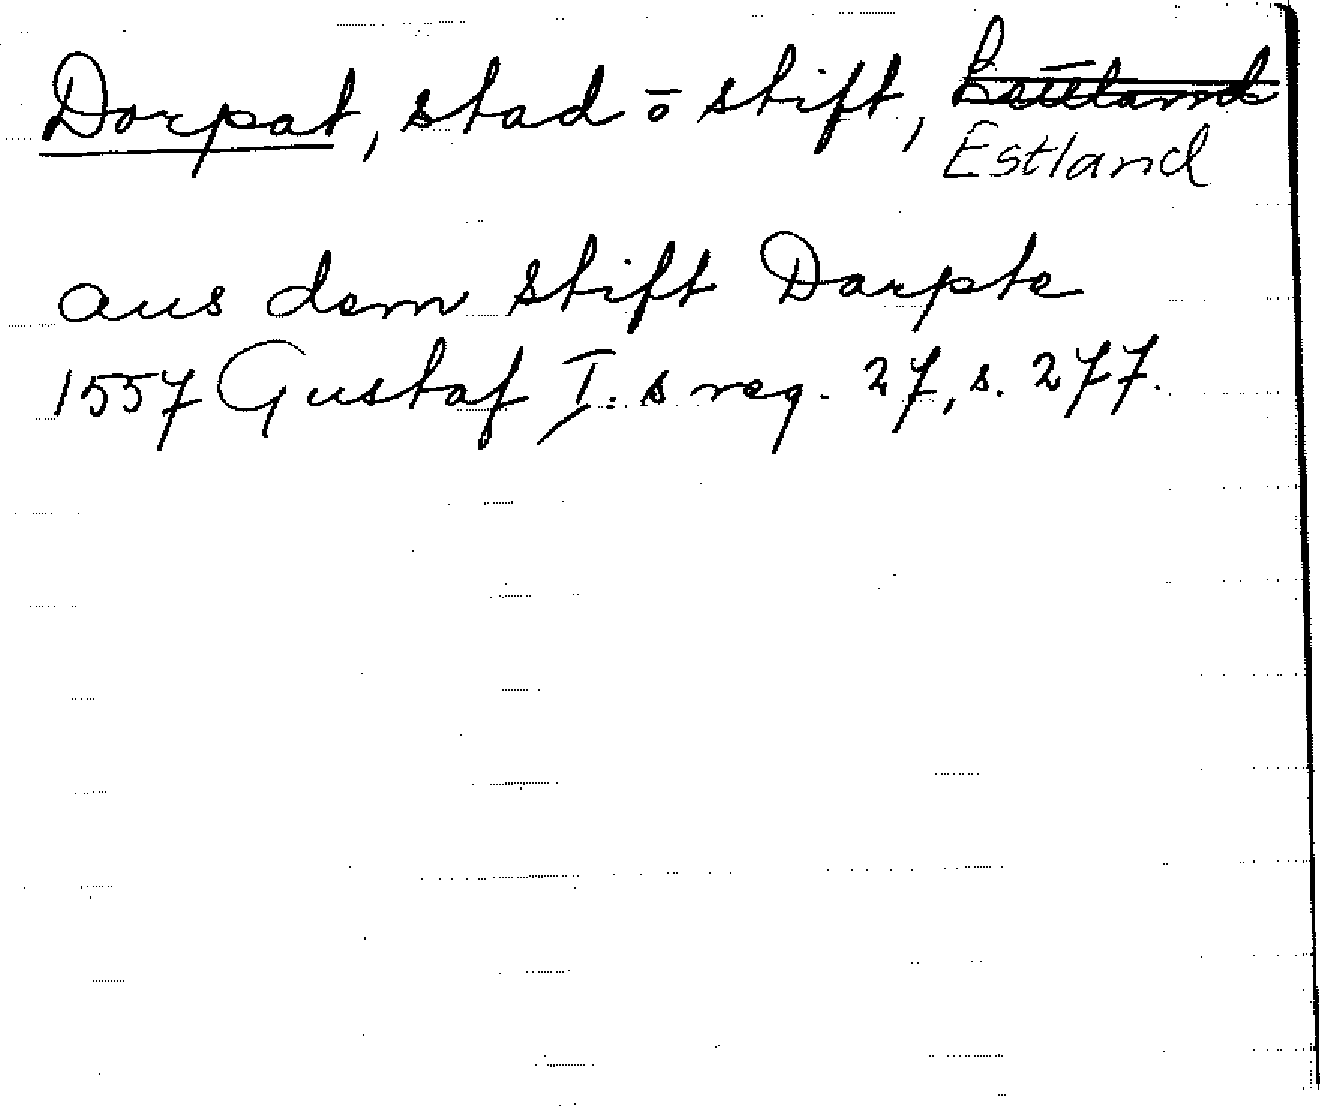 Dorpat, stad o stift, Lettland
Estland
aus dem stift Darpte
1557 Gustaf I:s reg. 27, s. 277.